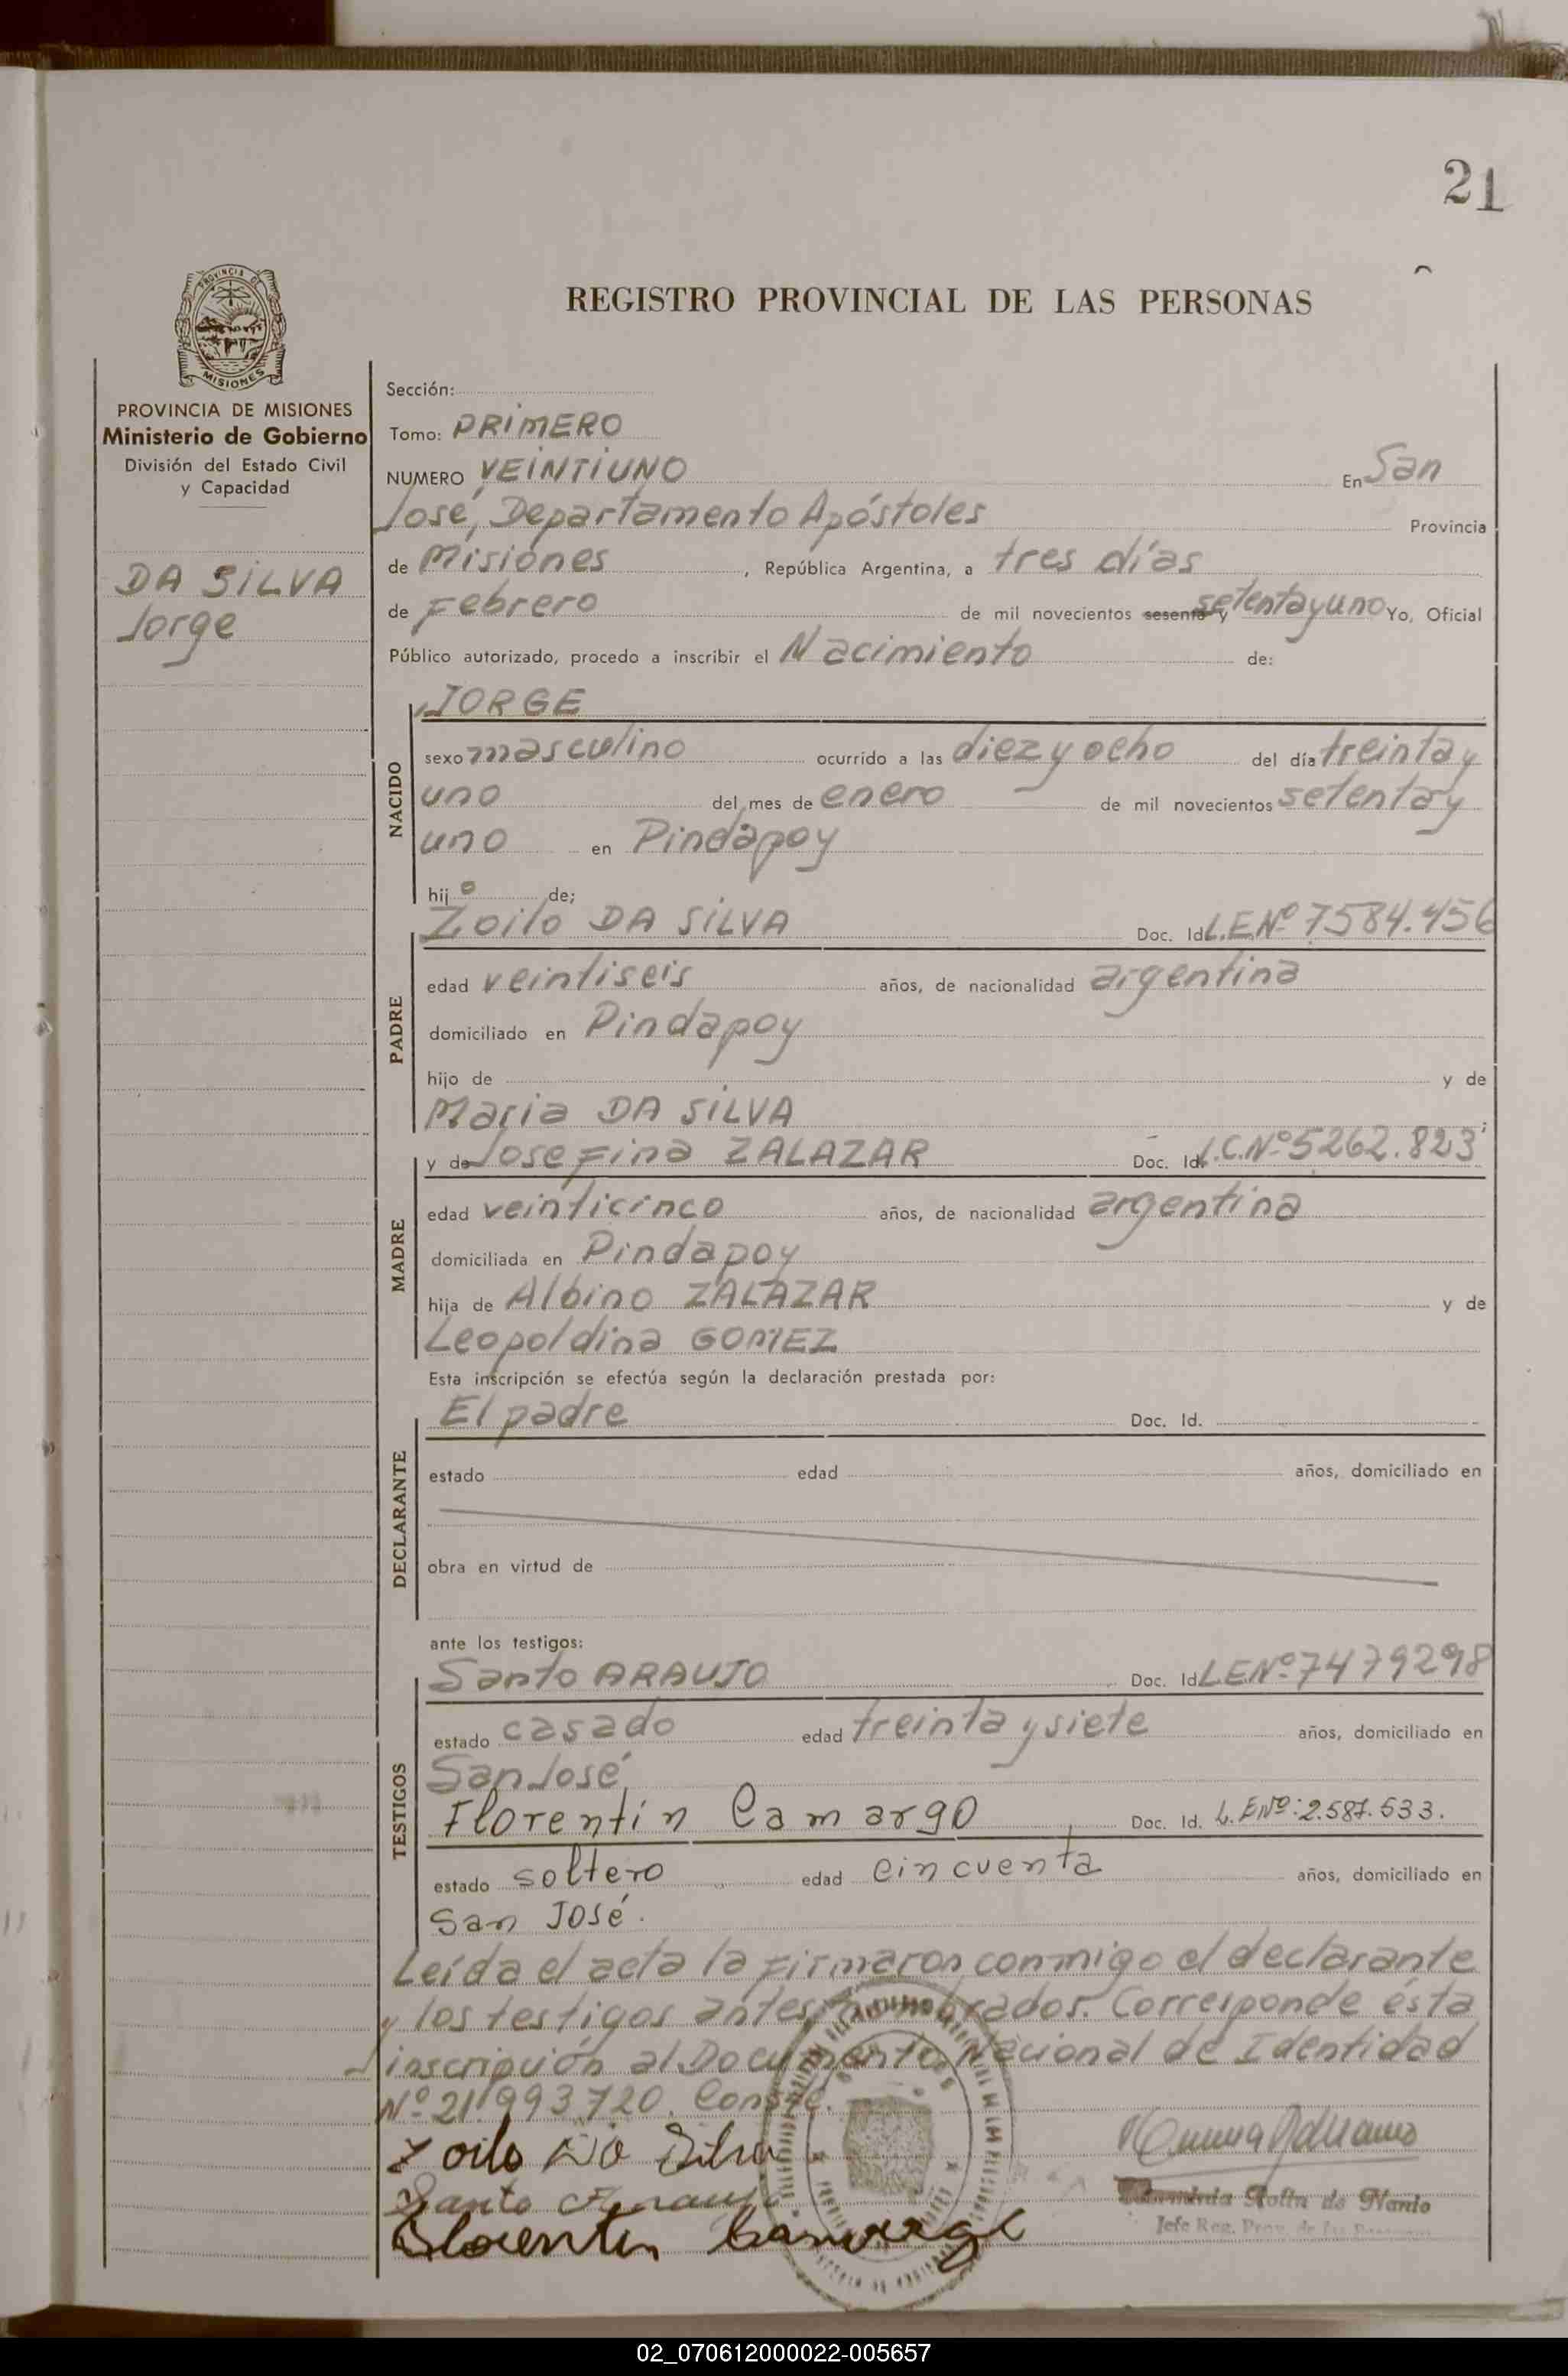 21
REGISTRO PROVINCIAL DE LAS PERSONAS
PROVINCIA DE
MISIONES
PROVINCIA DE MISIONES
Ministerio de Gobierno
División del Estado Civil
y Capacidad
DA SILVA
Jorge
Sección:
Tomo: PRIMERO
NUMERO VEINTIUNO En San
José, Departamento Apóstoles Provincia
de Misiones, República Argentina, a tres días
de Febrero de mil novecientos sesenta y setenta y uno Yo, Oficial
Público autorizado, procedo a inscribir el Nacimiento de:
JORGE
NACIDO
sexo masculino ocurrido a las diez y ocho del día treinta y
uno del mes de enero de mil novecientos setenta y
uno en Pindapoy
hijo de;
Zoilo DA SILVA Doc. Id. L.E.Nº 7584.456
PADRE
edad veintiseis años, de nacionalidad argentina
domiciliado en Pindapoy
hijo de y de
Maria DA SILVA
y de Josefina ZALAZAR Doc. Id. L.C.Nº 5262.823
MADRE
edad veinticinco años, de nacionalidad argentina
domiciliada en Pindapoy
hija de Albino ZALAZAR y de
Leopoldina GOMEZ
Esta inscripción se efectúa según la declaración prestada por:
El padre Doc. Id.
DECLARANTE
estado edad años, domiciliado en
obra en virtud de
ante los testigos:
Santo ARAUJO Doc. Id. L.E.Nº 7479298
TESTIGOS
estado casado edad treinta y siete años, domiciliado en
San José
Florentín Camargo Doc. Id. L.E.Nº: 2.587.533.
estado soltero edad cincuenta años, domiciliado en
San José.
Leída el acta la firmaron conmigo el declarante
y los testigos antes nombrados. Corresponde ésta
inscripción al Documento Nacional de Identidad
Nº 21.993720. Conste.
Zoilo Da Silva
Santo Araujo
Florentin Camargo
Jefe Reg. Prov. de las
02_070612000022-005657